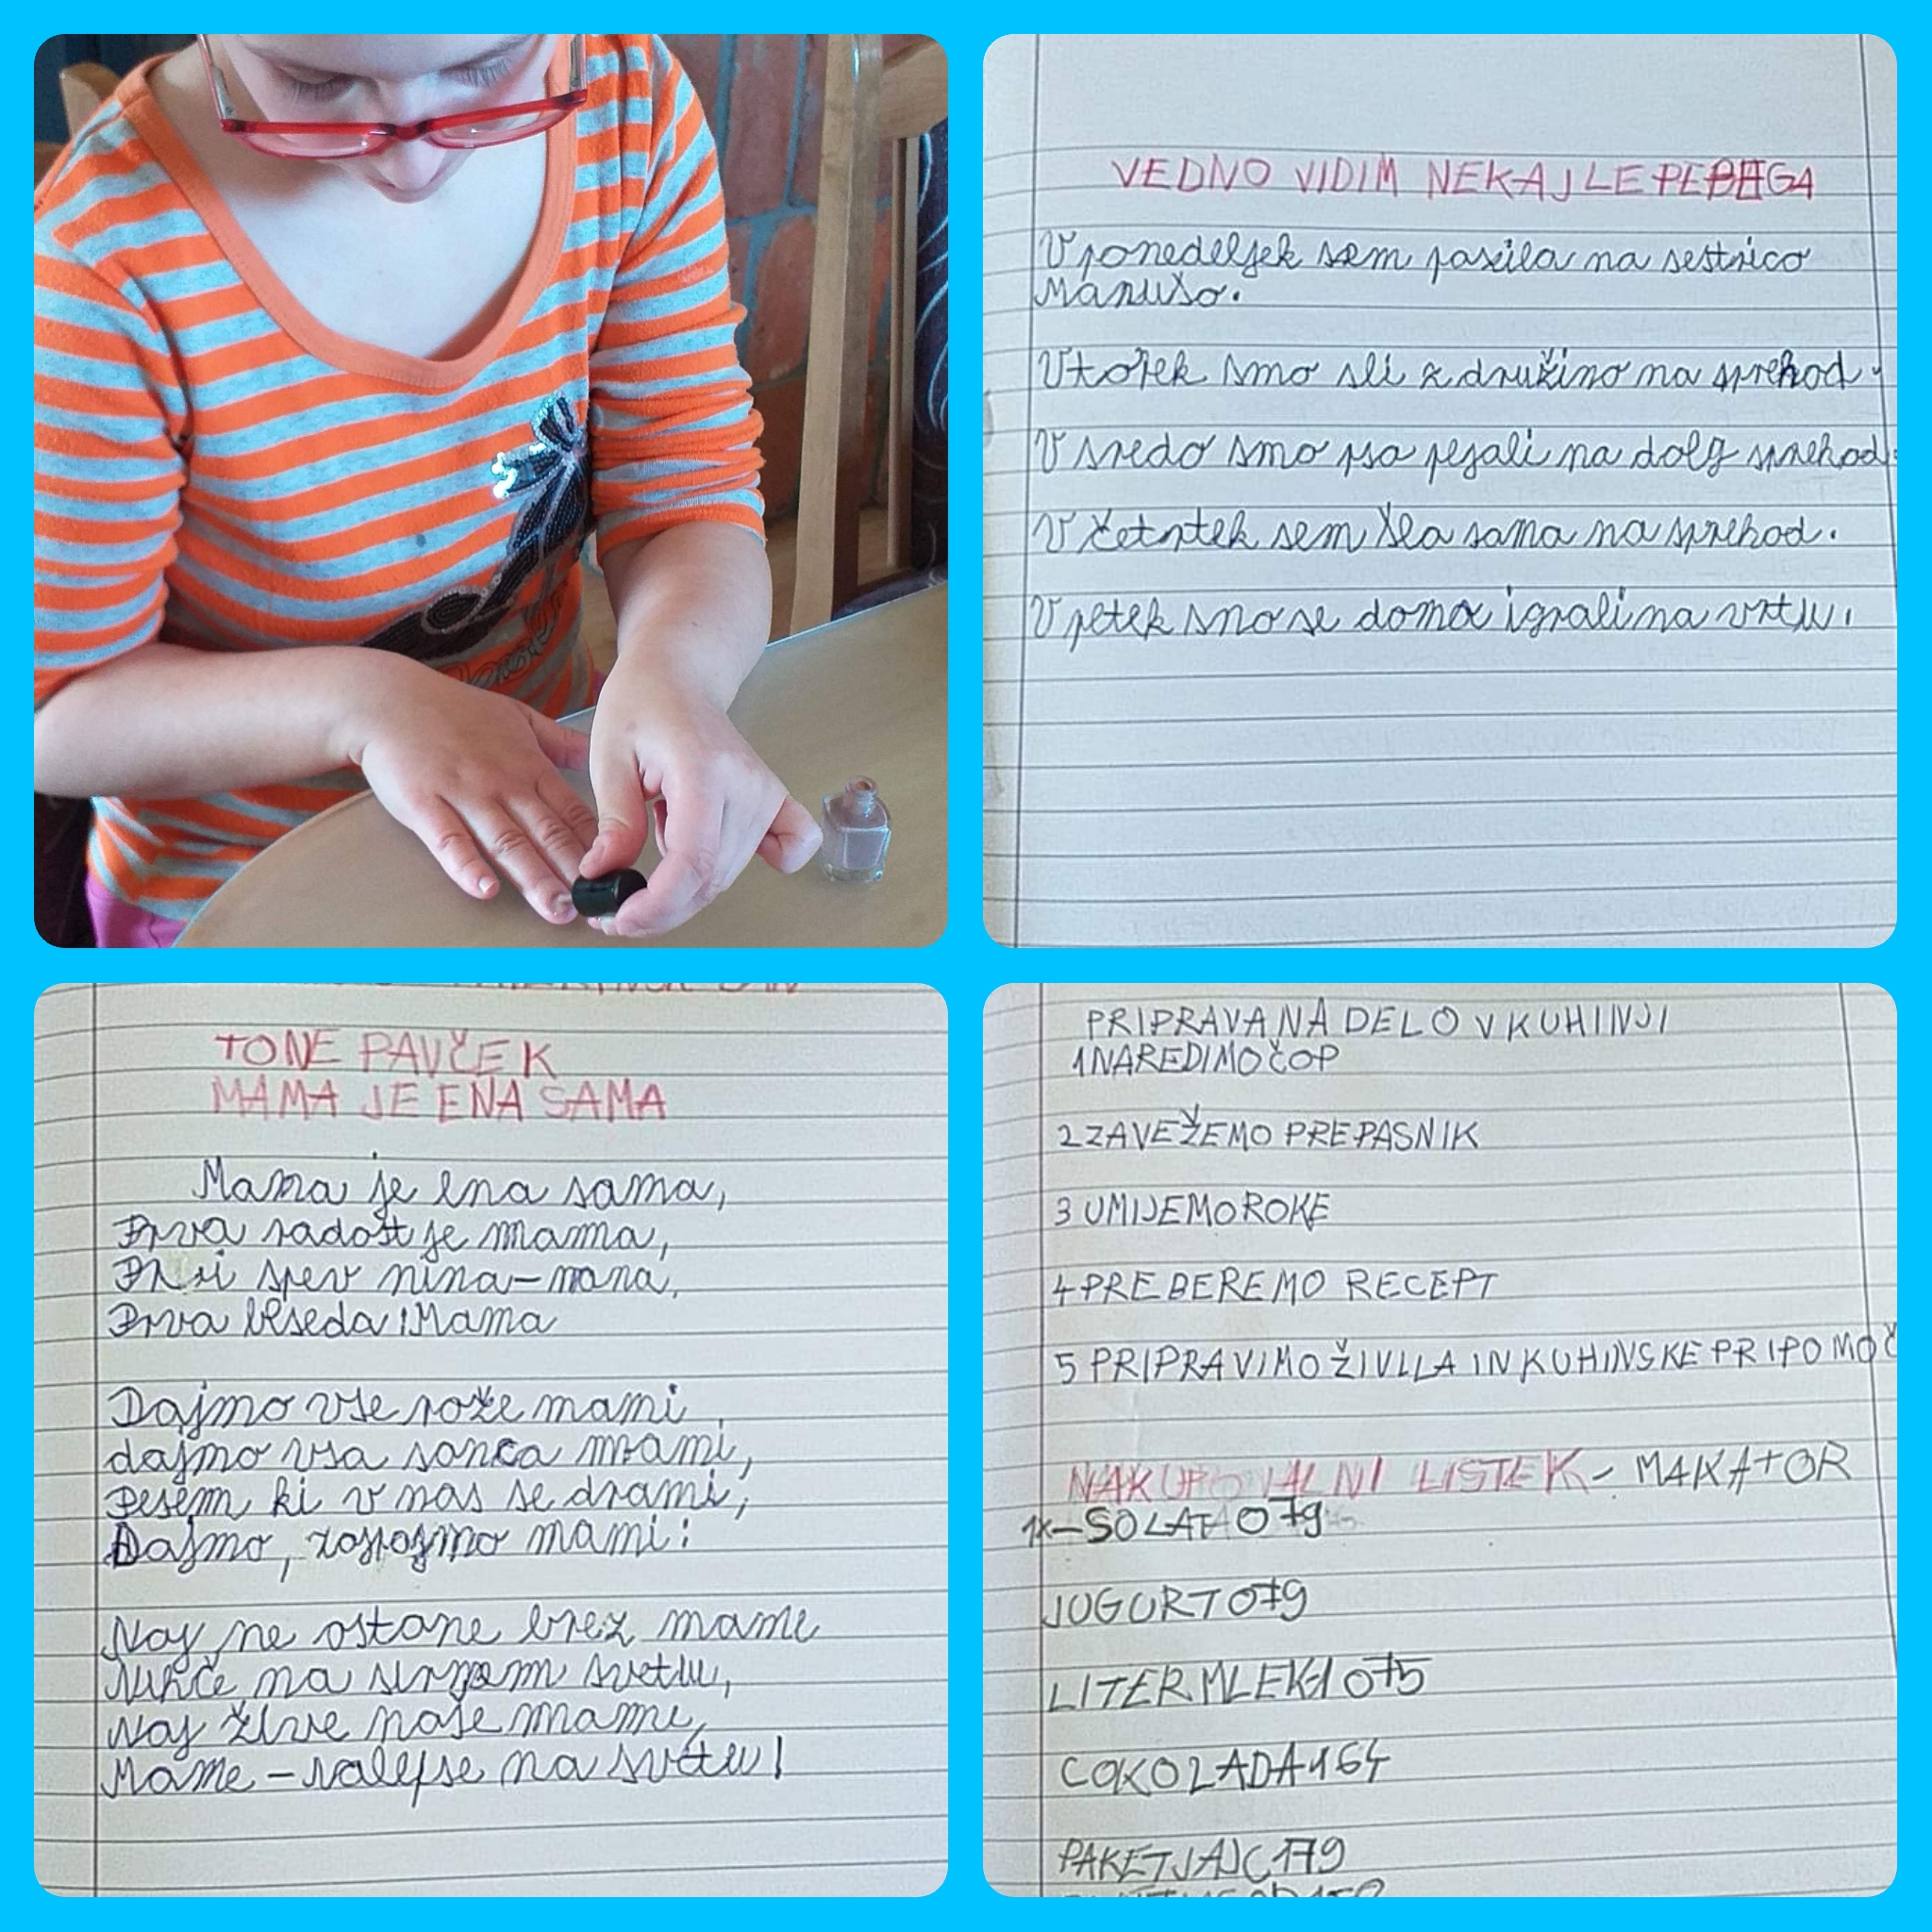 VEDNO VIDIM NEKAJ LEPEGA
V ponedeljek sem pazila na sestrico
Manušo.
V torek smo sli z družino na sprehod.
V sredo smo psa pejali na dolg sprehod.
V četrtek sem šla sama na sprehod.
V petek smo se doma igrali na vrtu.
TONE PAVČEK
MAMA JE ENA SAMA
Mama je ena sama,
Prva radost je mama,
Prvi spev nina-nana,
Prva beseda: Mama
Dajmo vse rože mami
dajmo vsa sonca mami,
Pesem ki v nas se drami,
Dajmo, zapojmo mami:
Naj ne ostane brez mame
Nihče na svetu,
Naj žive naše mame,
Mame - na svetu!
PRIPRAVA NA DELO V KUHINJI
1 NAREDIMO ČOP
2 ZAVEŽEMO PREPASNIK
3 UMIJEMO ROKE
4 PREBEREMO RECEPT
5 PRIPRAVIMO ŽIVILA IN KUHINSKE PRIPOMOČ
NAKUPOVALNI LISTEK - MAKATOR
1x - SOLATO 79
JUGURT 079
LITER MLEKA 075
COKOLADA 164
PAKET JAJC 179